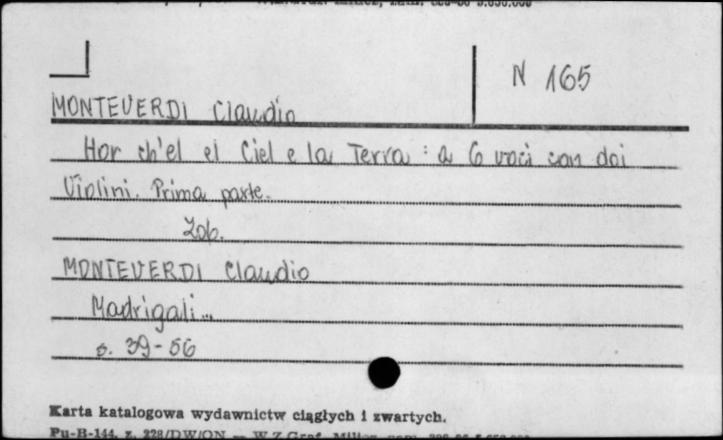 N 165
MONTEVERDI Claudio
Hor ch'el el Ciel e la Terra : a 6 voci con doi
Violini. Prima parte.
Zob.
MONTEVERDI Claudio
Madrigali...
s. 39-56
Karta katalogowa wydawnictw ciągłych i zwartych.
Pu-B-144, z. 228/DW/ON — W.Z.Graf.